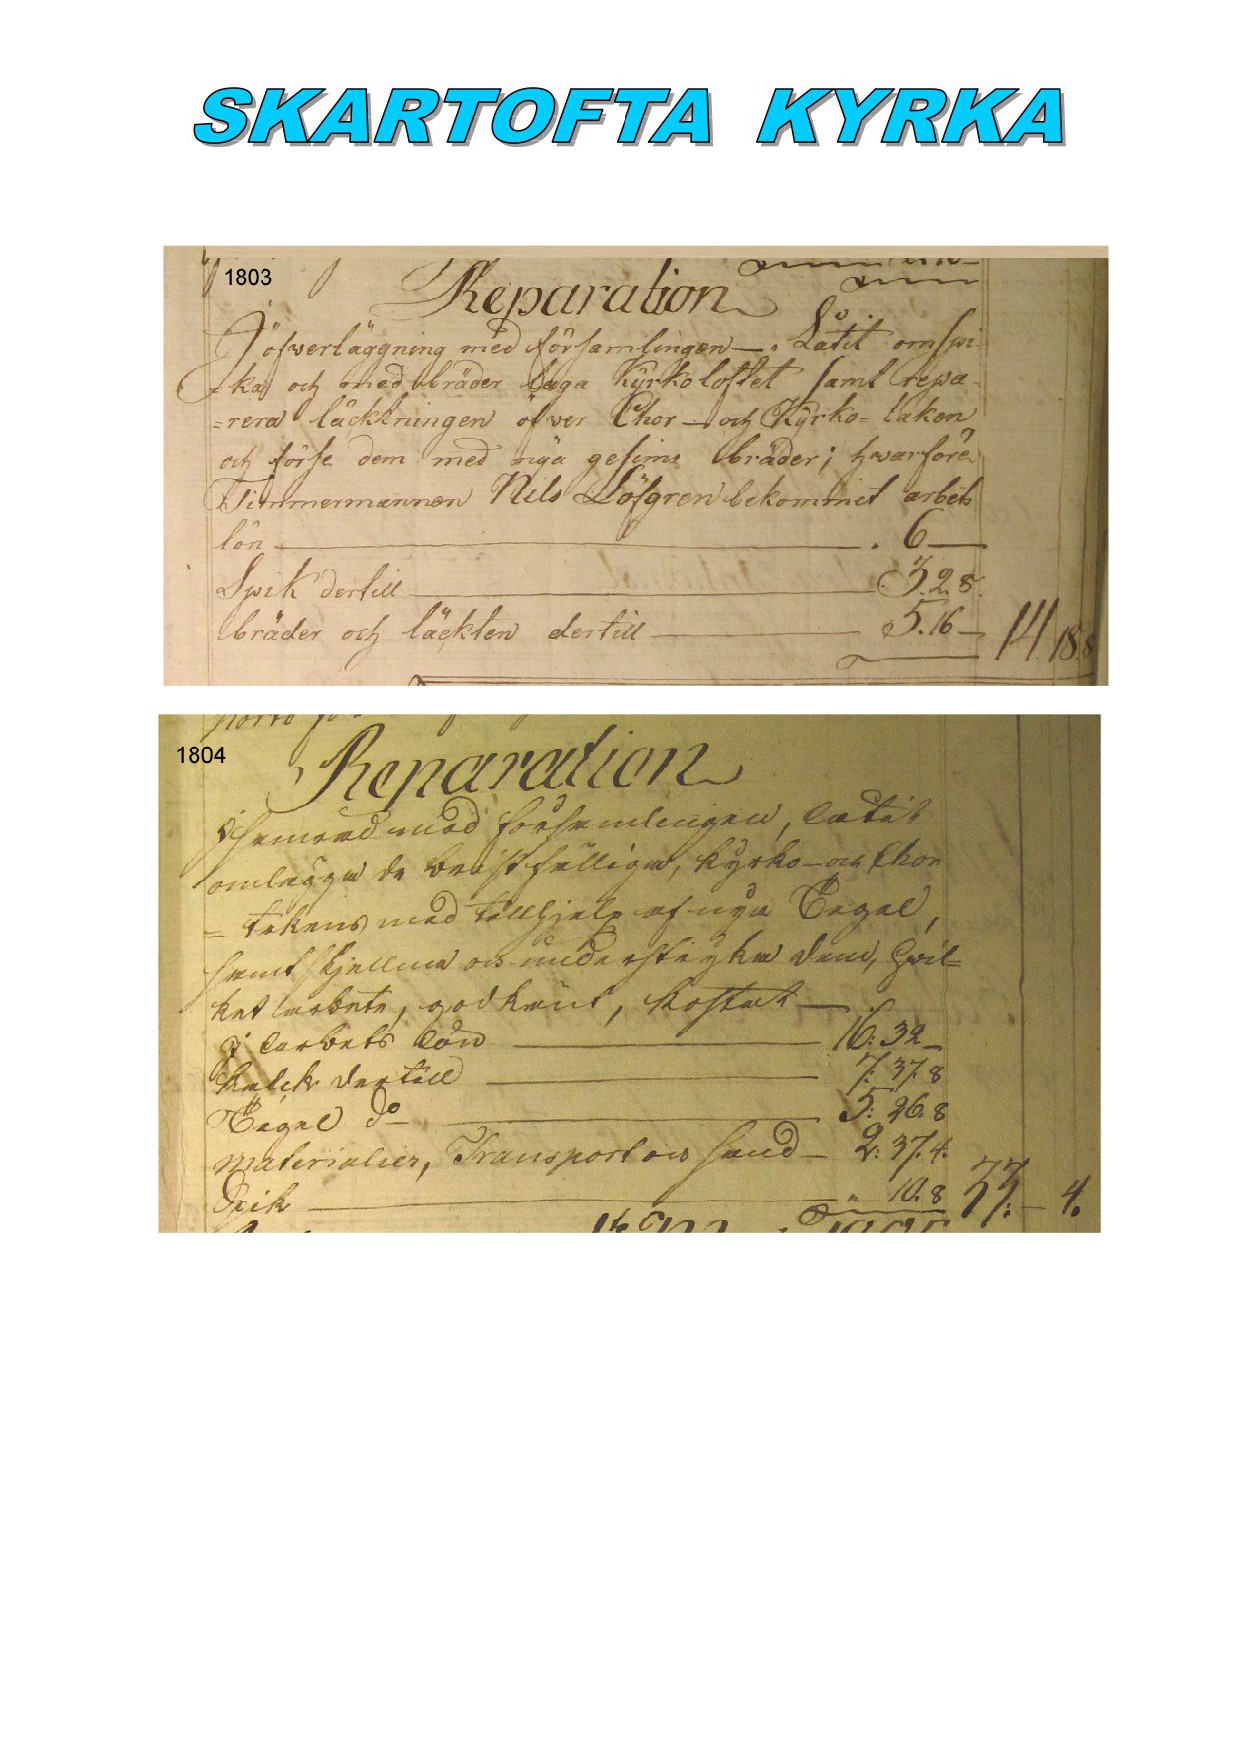 SKARTOFTA KYRKA
1803
Reparation
J öfverläggning med församlingen —. Låtit omspi-
-ka och med bräder laga Kyrkoloftet samt repa-
=rera läckktningen öfver Chor — och Kyrko-taken
och förse dem med nya gesims bräder; hvarföre
Timmermannen Nils Löfgren bekommit arbets
lön — . 6 —
Spik dertill — 3.2.8.
bräder och läckten dertill — 5.16 — 14 18.8
1804
Reparation
samråd med församlingen, låtit
omlägga de bristfällige, Kyrko- och Chor
= takens med tillhjelp af nya Tegel,
samt skjellna och understryka dem, hvil=
ket arbete, godkänt, kostat —
i arbets lön — 16: 32 —
Kalck dertill — 7: 37. 8
Tegel do — 5: 26. 8
Materialier, Transport och sand — 2: 37. 4.
Spik — " 10. 8 — 4.